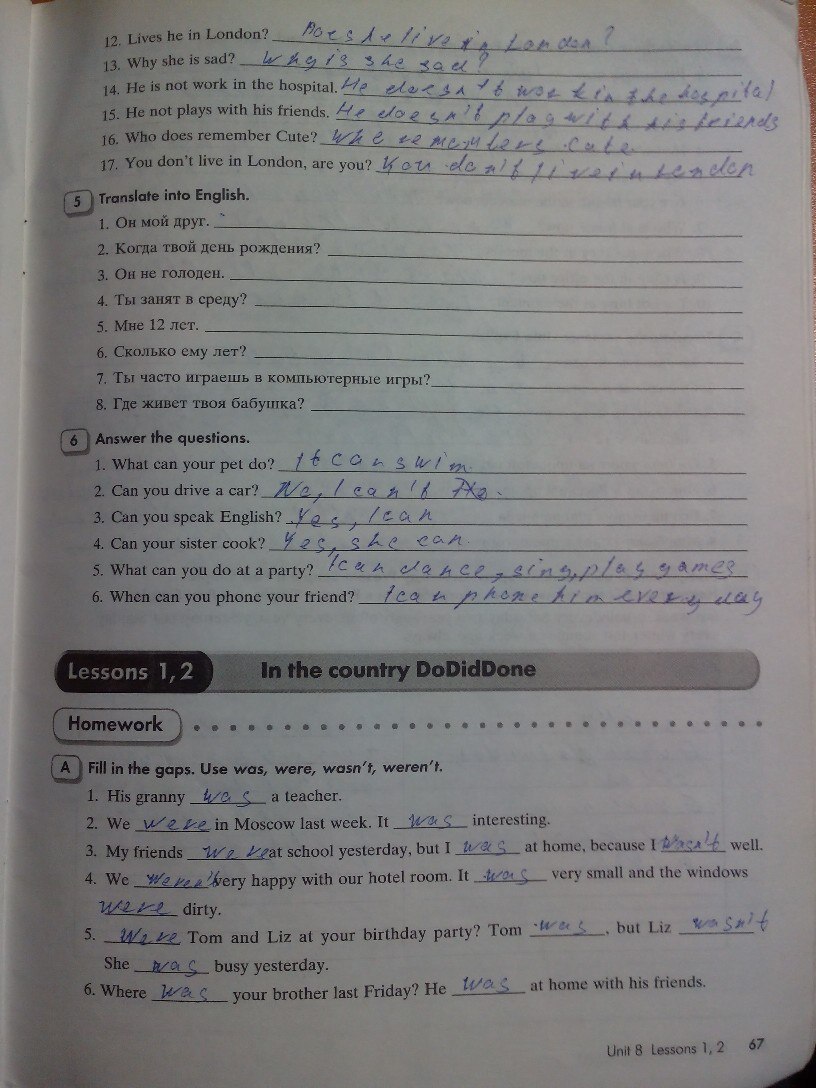 12. Lives he in London? Does he live in London?
13. Why she is sad? Why is she sad?
14. He is not work in the hospital. He doesn't work in the hospital
15. He not plays with his friends. He doesn't play with his friends
16. Who does remember Cute? Who remembers Cute
17. You don't live in London, are you? You don't live in London
5 Translate into English.
1. Он мой друг.
2. Когда твой день рождения?
3. Он не голоден.
4. Ты занят в среду?
5. Мне 12 лет.
6. Сколько ему лет?
7. Ты часто играешь в компьютерные игры?
8. Где живет твоя бабушка?
6 Answer the questions.
1. What can your pet do? It can swim.
2. Can you drive a car? No, I can't
3. Can you speak English? Yes, I can
4. Can your sister cook? Yes, she can.
5. What can you do at a party? I can dance, sing, play games
6. When can you phone your friend? I can phone him every day
Lessons 1, 2 In the country DoDidDone
Homework
A Fill in the gaps. Use was, were, wasn't, weren't.
1. His granny was a teacher.
2. We were in Moscow last week. It was interesting.
3. My friends were at school yesterday, but I was at home, because I wasn't well.
4. We weren't very happy with our hotel room. It was very small and the windows
were dirty.
5. Were Tom and Liz at your birthday party? Tom was, but Liz wasn't
She was busy yesterday.
6. Where was your brother last Friday? He was at home with his friends.
Unit 8 Lessons 1, 2 67